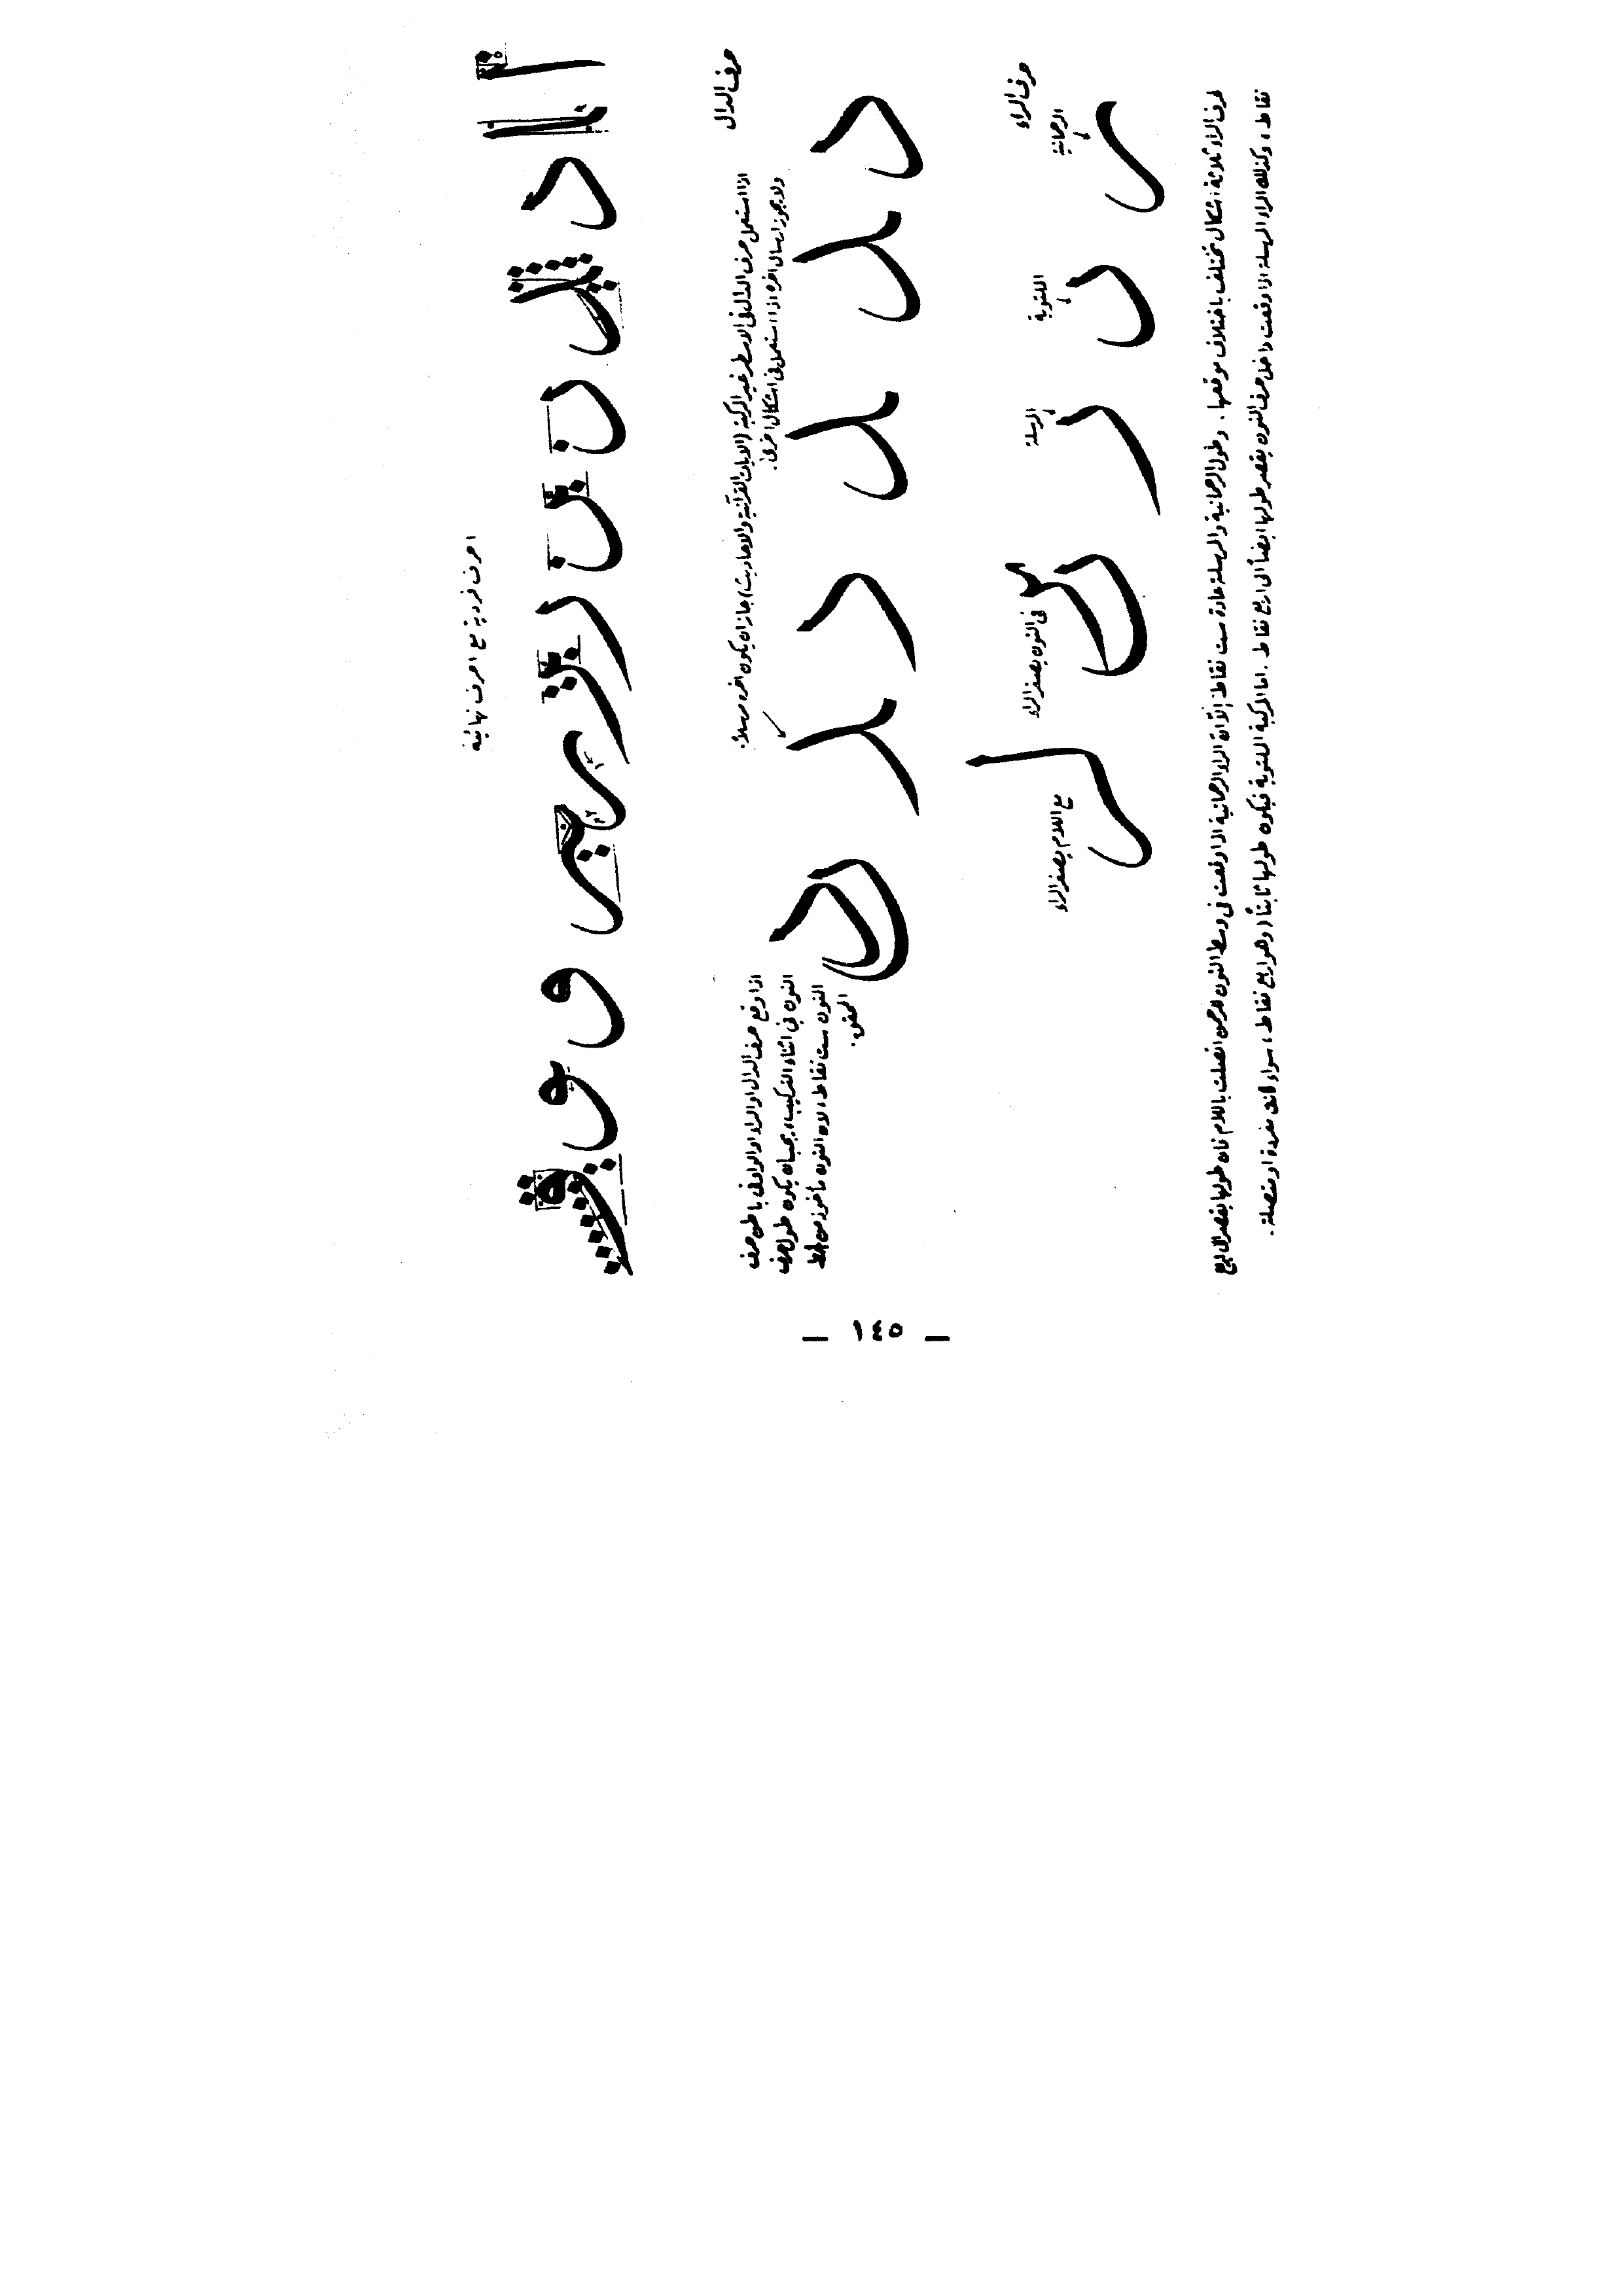 احرف فردية مع احرف نهائية
حرف الدال
اذا استعمل حرف الدال في الاسطر غير المركبة (الآيات القرآنية والاحاديث) جاز ان يكون آخره مرسلاً.
ولا يجوز ارسال آخره اذا استعمل في اشكال اخرى.
اذا وقع حرف الدال او الراء او الواو في باطن حرف
النون في اثناء التركيب، يجب ان يكون طول حرف
النون ست نقاط، لان النون مأخوذ من الخط
المحقق.
حرف الراء
الرحمانية
الملتوية
المرسلة
في النون يصغر الراء
مع اللام يصغر الراء
لحرف الراء ثلاثة اشكال تختلف باختلاف موقعها. وطول الرحمانية والمرسلة عادة ست نقاط إلّا أنّ الراء الرحمانية اذا وقعت في وسط النون اتصلت باللام فان طولها يقصر الى اربع
نقاط، وكذلك الراء المرسلة اذا وقعت داخل حرف النون يقصر طولها ايضاً الى اربع نقاط. اما المركبة الملتوية فيكون طولها ثابتاً (وهو اربع نقاط، سواء كانت مفردة او متصلة.
— ١٤٥ —